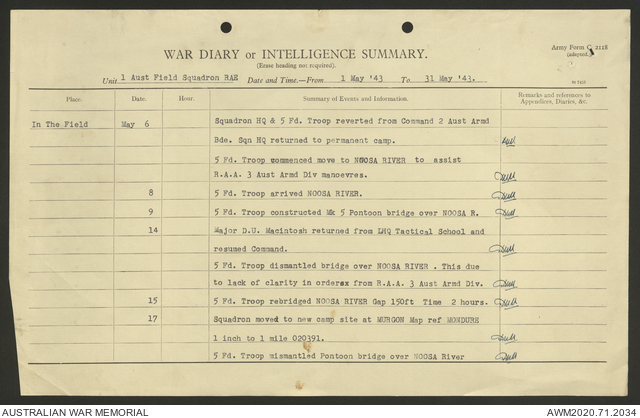 Army Form C 2118
(adapted.)
WAR DIARY or INTELLIGENCE SUMMARY.
(Erase heading not required).
Unit 1 Aust Field Squadron RAE Date and Time.—From 1 May '43 To 31 May '43.
Place. Date. Hour. Summary of Events and Information. Remarks and references to Appendices, Diaries, &c.
In The Field May 6 Squadron HQ & 5 Fd. Troop reverted from Command 2 Aust Armd
Bde. Sqn HQ returned to permanent camp.
5 Fd. Troop commenced move to NOOSA RIVER to assist
R.A.A. 3 Aust Armd Div manoevres.
8 5 Fd. Troop arrived NOOSA RIVER.
9 5 Fd. Troop constructed Mk 5 Pontoon bridge over NOOSA R.
14 Major D.U. Macintosh returned from LHQ Tactical School and
resumed Command.
5 Fd. Troop dismantled bridge over NOOSA RIVER . This due
to lack of clarity in orders from R.A.A. 3 Aust Armd Div.
15 5 Fd. Troop rebridged NOOSA RIVER Gap 150ft Time 2 hours.
17 Squadron moved to new camp site at MURGON Map ref MONDURE
1 inch to 1 mile 020391.
5 Fd. Troop mismantled Pontoon bridge over NOOSA River
AUSTRALIAN WAR MEMORIAL AWM2020.71.2034